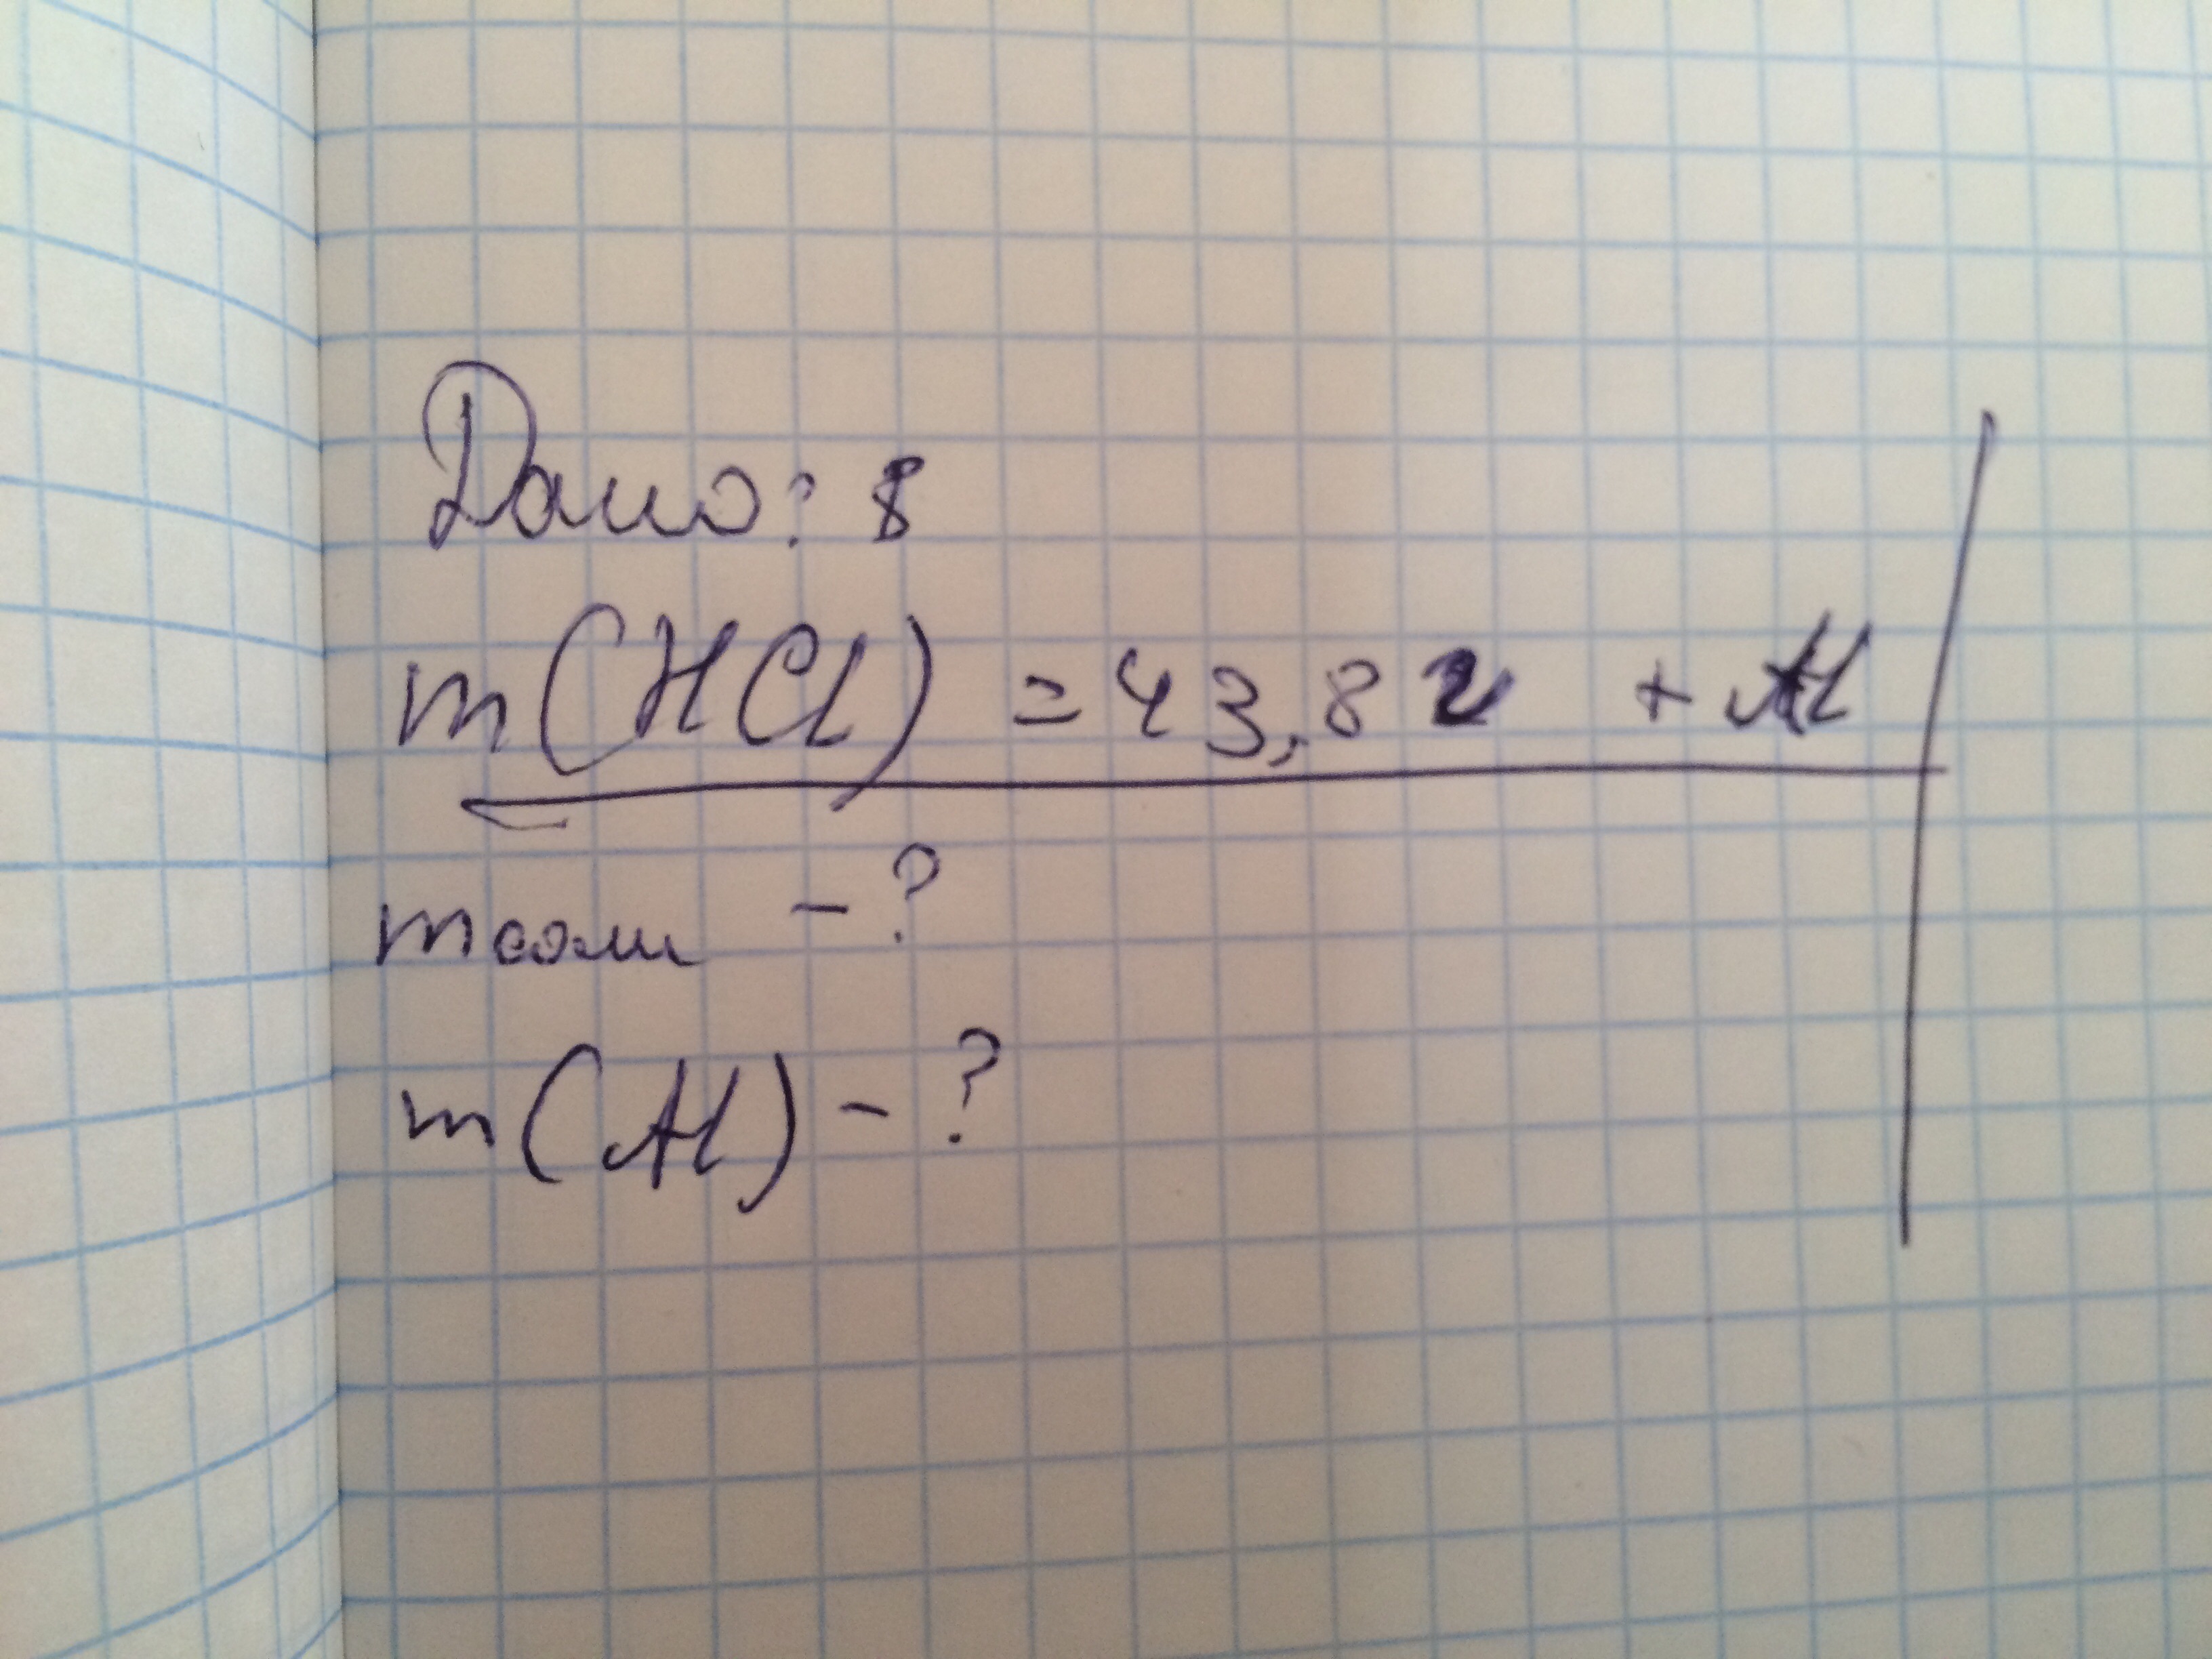 Дано: 8
m(HCl) = 43,8 г + Al
m соли - ?
m(Al) - ?